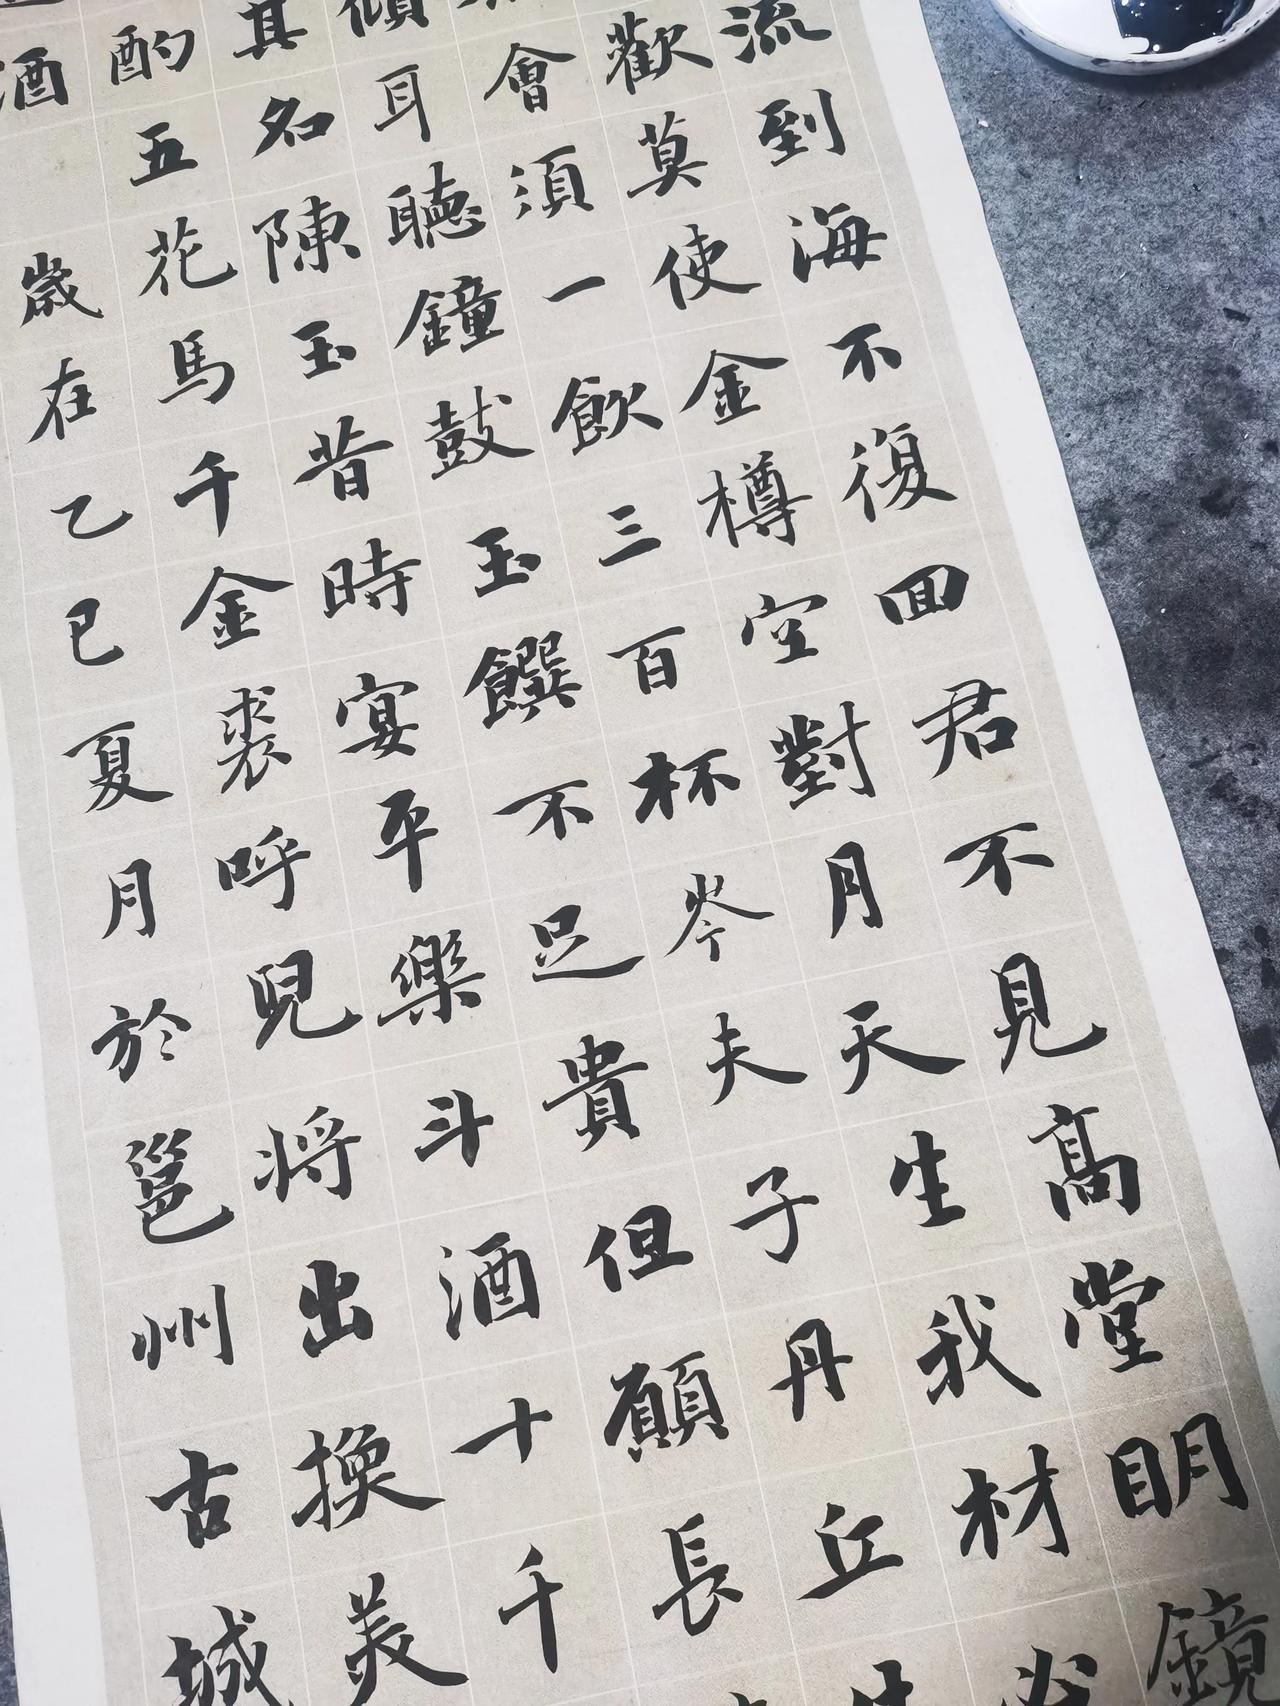 流到海不復回君不見高堂明鏡
歡莫使金樽空對月天生我材必
會須一飲三百杯岑夫子丹丘生
傾耳聽鐘鼓玉饌不足貴但願長
其名陳玉昔時宴平樂斗酒十千
酌五花馬千金裘呼兒将出換美
酒
歲在乙巳夏月於邕州古城